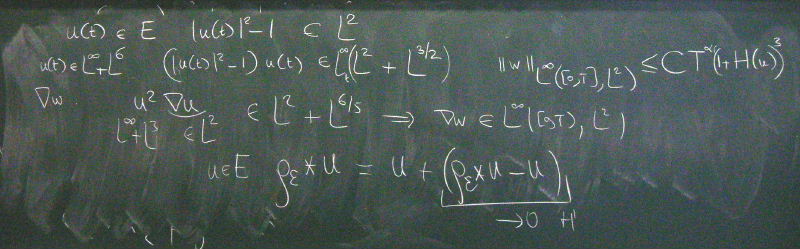 u(t) ∈ E |u(t)|²-1 ∈ L²
u(t) ∈ L^∞+L⁶ (|u(t)|²-1) u(t) ∈ L_t^∞(L² + L^{3/2}) ||w||_{L^∞([0,T],L²)} ≤ CT^α(1+H(u))³
∇w u² ∇u ∈ L² + L^{6/5} ⟹ ∇w ∈ L^∞([0,T), L²)
L^∞+L³ ∈L²
u∈E ρ_ε*u = u + (ρ_ε*u-u)
→0 H¹